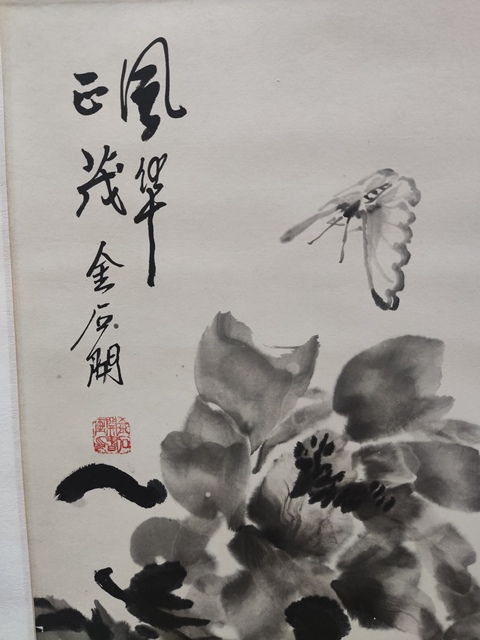 風華
正茂
金石開